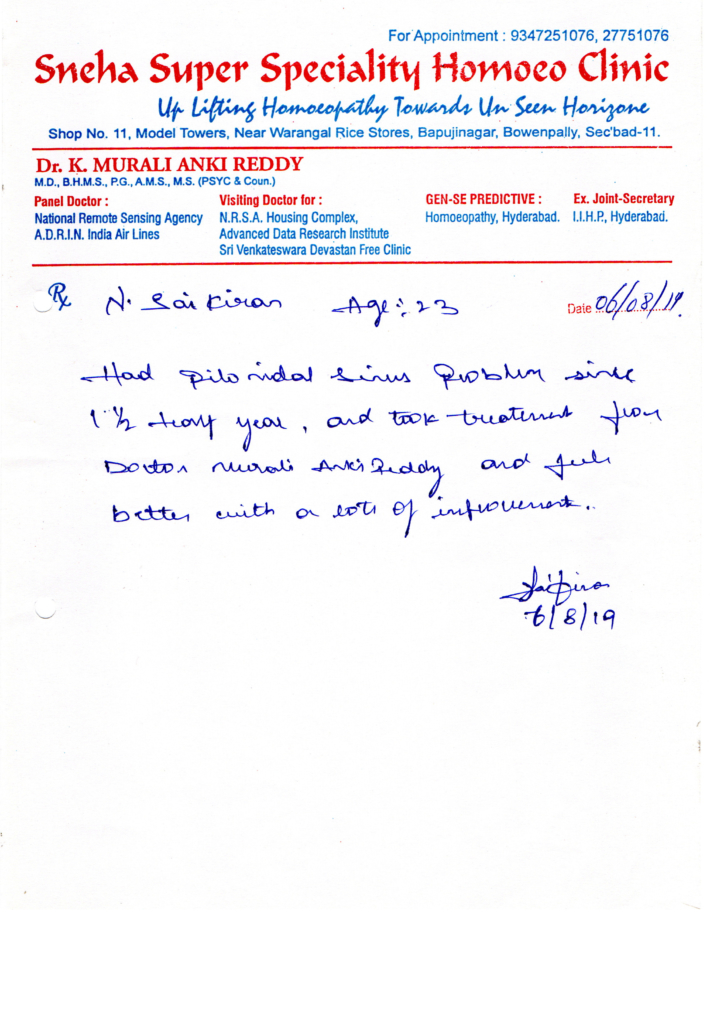 For Appointment : 9347251076, 27751076
Sneha Super Speciality Homoeo Clinic
Up Lifting Homoeopathy Towards Un Seen Horizone
Shop No. 11, Model Towers, Near Warangal Rice Stores, Bapujinagar, Bowenpally, Sec'bad-11.
Dr. K. MURALI ANKI REDDY
M.D., B.H.M.S., P.G., A.M.S., M.S. (PSYC & Coun.)
Panel Doctor : Visiting Doctor for : GEN-SE PREDICTIVE : Ex. Joint-Secretary
National Remote Sensing Agency N.R.S.A. Housing Complex, Homoeopathy, Hyderabad. I.I.H.P., Hyderabad.
A.D.R.I.N. India Air Lines Advanced Data Research Institute
Sri Venkateswara Devastan Free Clinic
Rx N. Sai Kiran Age : 23 Date 06/08/19.
Had pilonidal sinus problem since
1 1/2 year, and took treatment from
Doctor Murali Anki Reddy and feels
better with a lots of improvement..
Saikiran
6/8/19